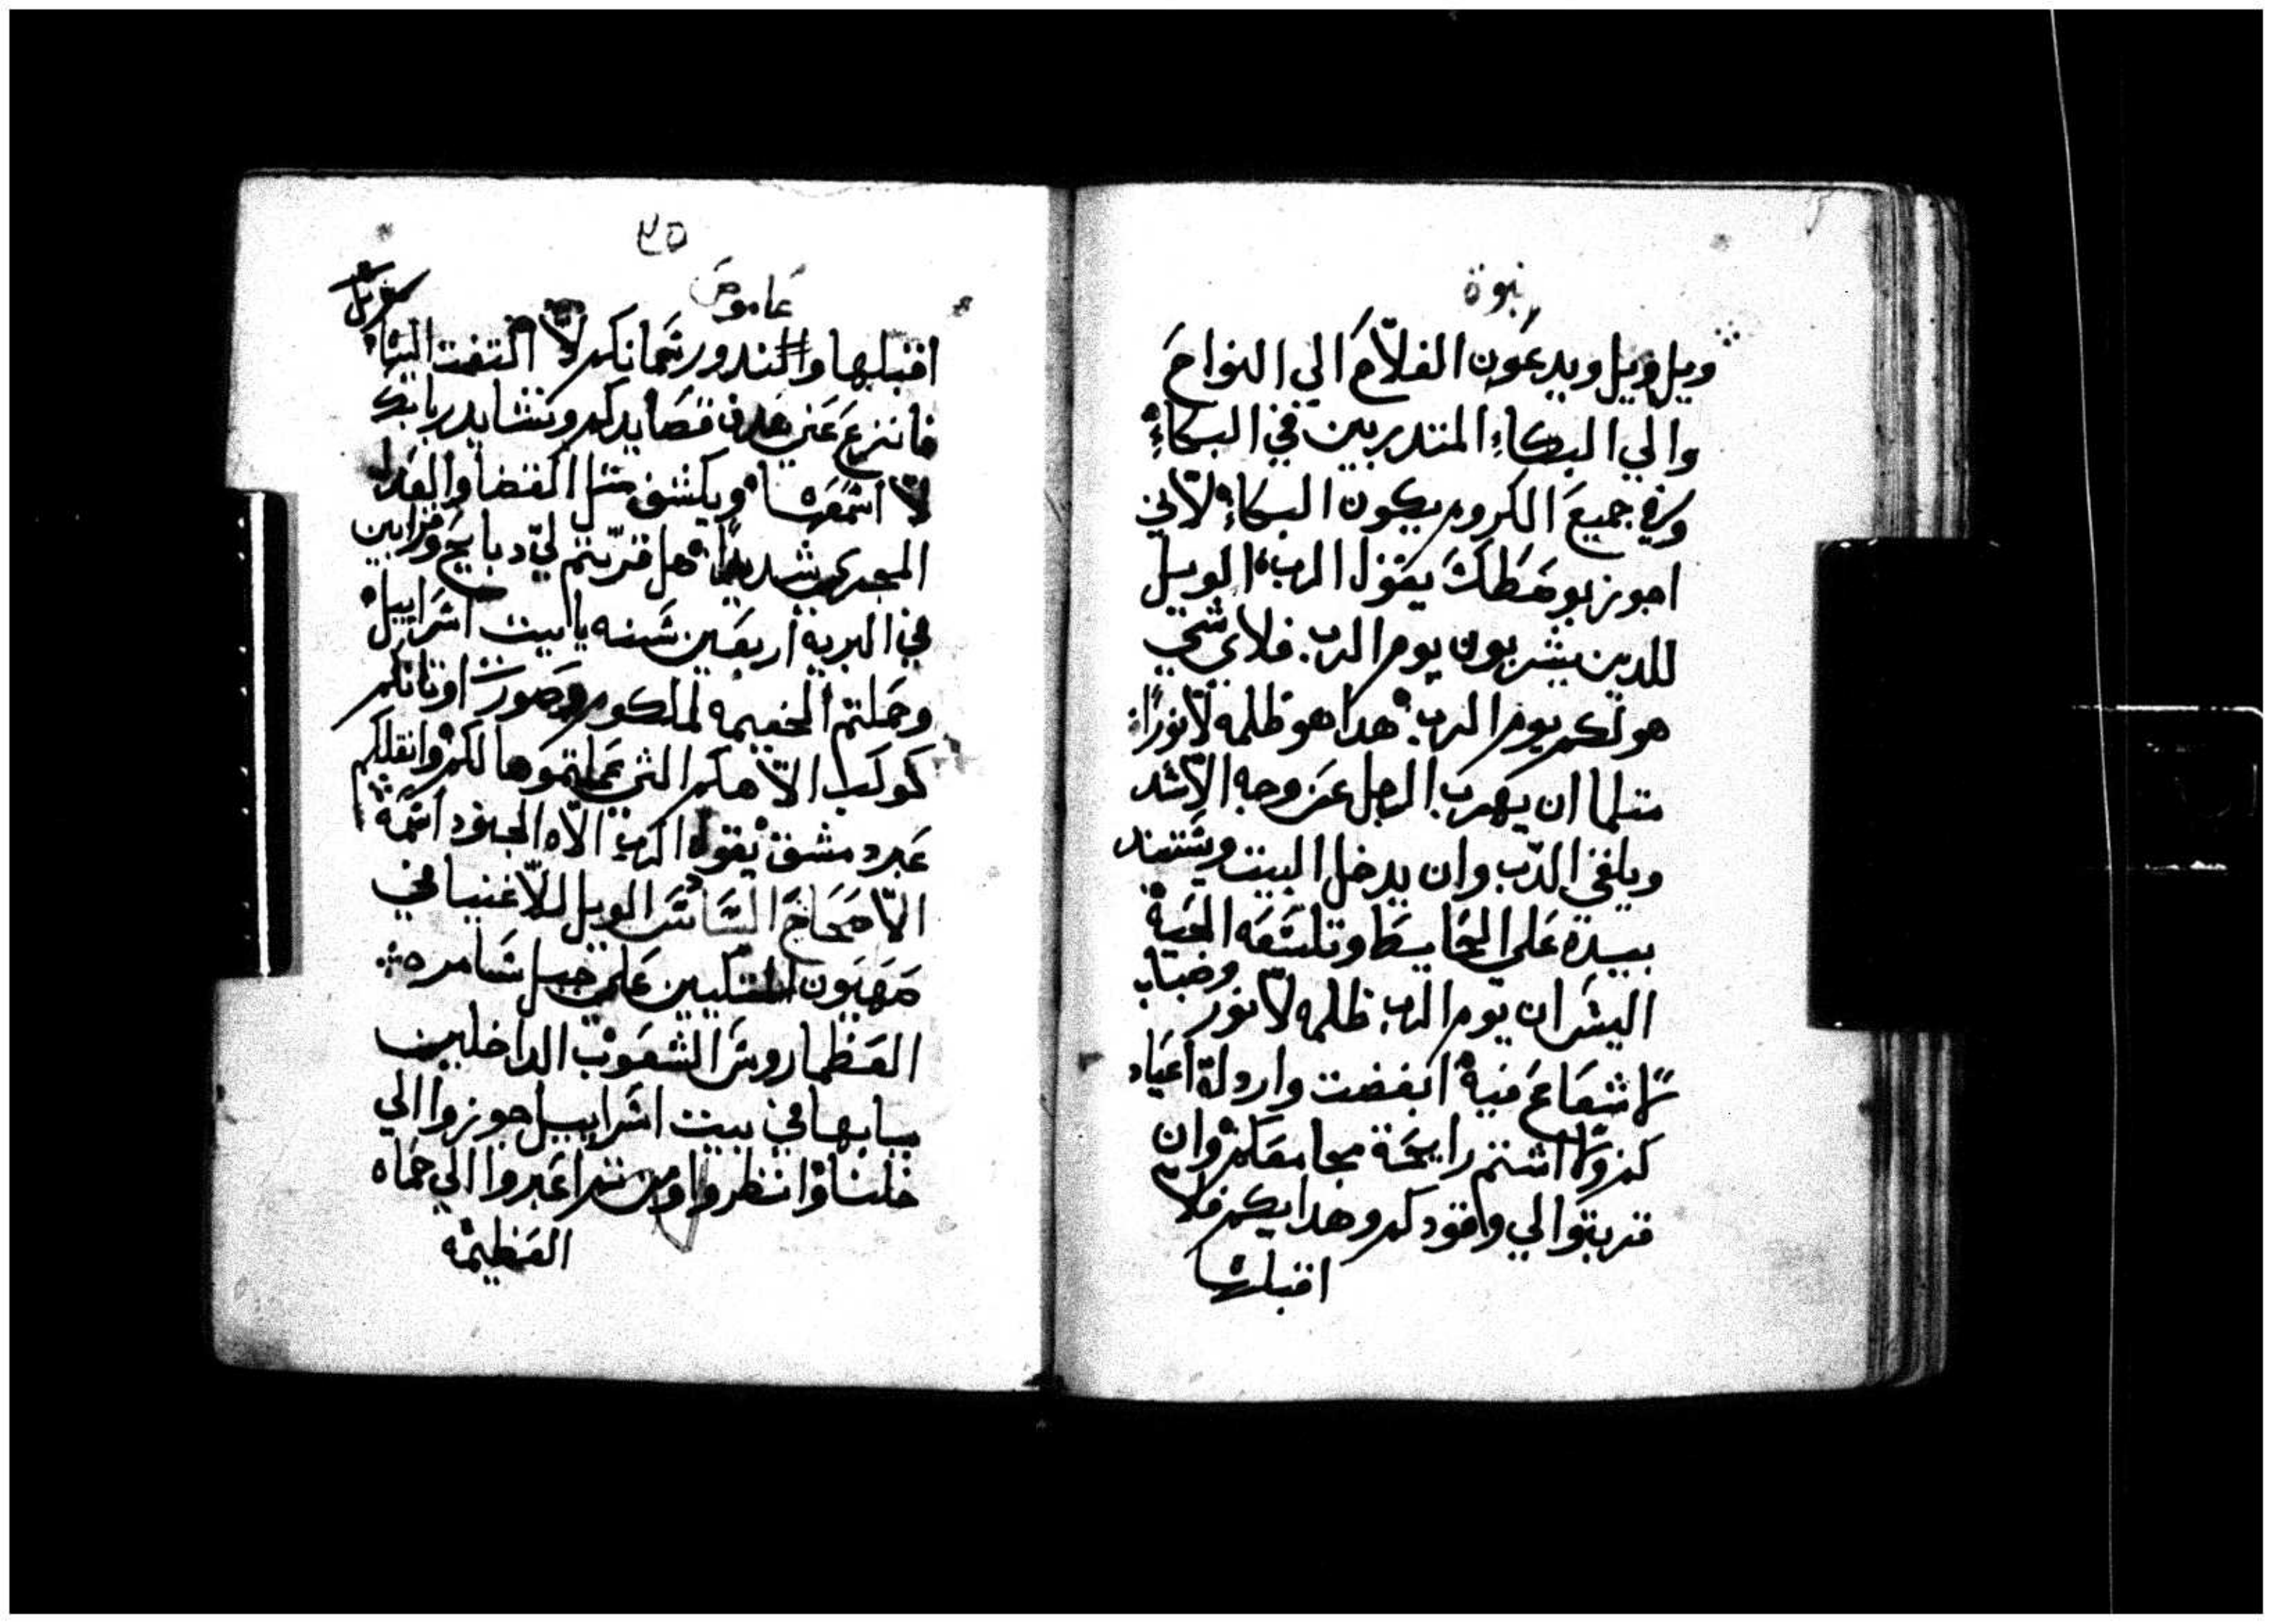 نبوة
ويل ويل ويدعون الفلاح الي النواح
والي البكاء المتدربين في البكاء
وفي جميع الكروم يكون البكاء لاني
اجوز بوسطك يقول الرب الويل
للدين يشربون يوم الرب فلاي شي
هو لكم يوم الرب هدا هو ظلمه لا نورا
متلما ان يهرب الرجل عن وجه الاسد
ويلقي الدب وان يدخل البيت ويستند
بيده علي الحايط وتلسعه الحية
اليس ان يوم الرب ظلمه لا نور وضباب
لا شعاع فيه ابغضت واردلة اعياد
كم ولا اشتم رايحة مجامعكم وان
قربتوا لي وقودكم وهدايكم فلا
اقبلها
٢٥
عاموص
اقبلها والندور سمانكم لا التفت اليها
فانزع عني قصايدكم ونشايد ربابك
لا اسمعها ويكشف متل القضا والعدل
المجري شديدا هل قربتم لي دبايح وقرابين
في البريه اربعين سنه يا بيت اسراييل
وحملتم الخيمه لملكوم وصورت اوتانكم
كوكب الاهكم التي عملتموها لكم وانقلكم
عبر دمشق يقول الرب الاه الجنود اسمه
الاصحاح السادس الويل للاغنيا في
صهيون المتكيين علي جبل سامره
العظما روس الشعوب الداخلين
ببابها في بيت اسراييل جوزوا الي
خلنا وانظروا ومن تم اعبروا الي حماه
العظيمه